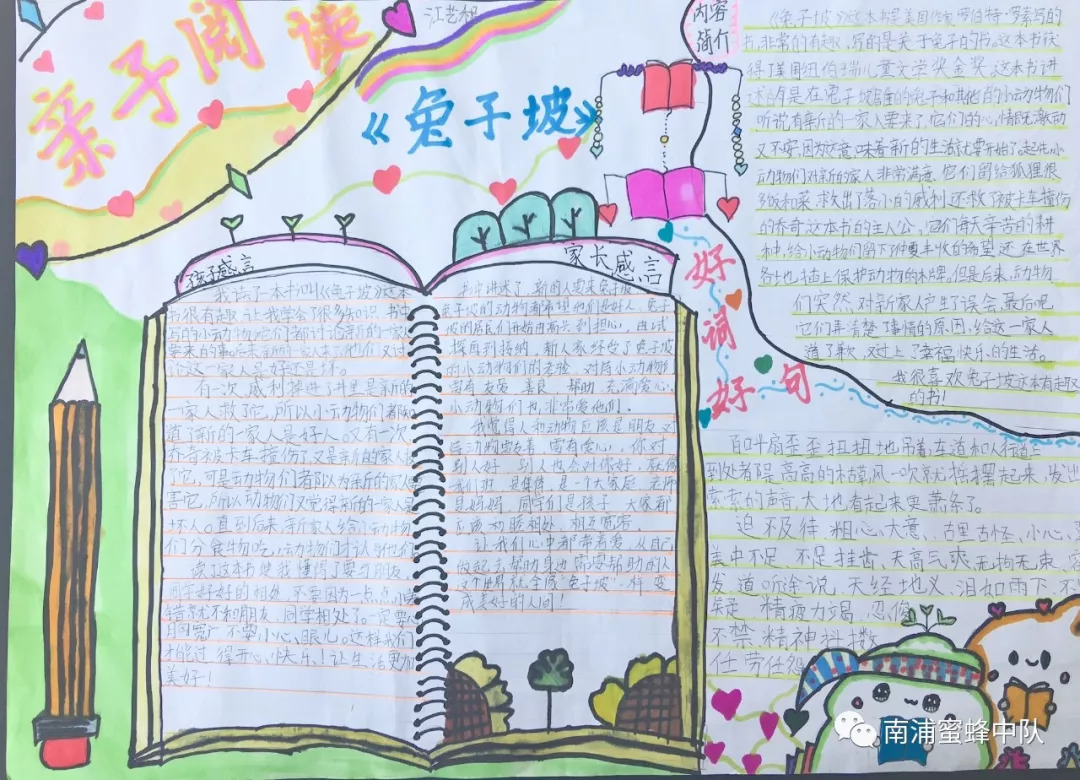 亲子阅读
江艺
《兔子坡》
内容
简介
《兔子坡》这本书是美国作家罗伯特·罗素写的
书,非常的有趣,写的是关于兔子的书。这本书获
得了美国纽伯瑞儿童文学奖金奖。这本书讲
述的是在兔子坡的兔子和其他的小动物们
听说有新的一家人要来了,它们的心情既激动
又不安,因为这意味着新的生活就要开始了。起先小
动物们对新的家人非常满意,它们留给狐狸很
多饭和菜,救出了落水的威利,还救了被卡车撞伤
的乔奇,这本书的主人公,它们每天辛苦的耕
种,给小动物们留下种要丰收的希望,还在世界
各地插上保护动物的木牌。但是后来,动物
们突然对新家人产生了误会,最后呢
它们弄清楚事情的原因,给这一家人
道了歉,又过上了幸福快乐的生活。
我很喜欢兔子坡这本有趣
的书!
孩子感言
我读了一本书叫《兔子坡》这本
书很有趣,让我学会了很多知识。书中
写的小动物,它们都讨论着新的一家人
要来的事。后来新的一家人来了,他们又讨
论这一家人是好还是坏。
有一次,威利掉进了井里是新的
一家人救了它,所以小动物们者知
道了新的一家人是好人。又有一次
乔奇被卡车撞伤了,又是新的家人
了它,可是动物们都以为新的家人
害它,所以动物们又觉得新的一家人
坏人。直到后来,新家人给小动物
们分食物吃,小动物们才认与他们
读了这本书使我懂得了要与朋友,
同学好好的相处,不要因为一点点小
错就不和朋友、同学相处了。一定要心
胸宽广,不要小心眼儿。这样我们
才能过得开心、快乐,让生活更加
美好!
家长感言
书中讲述了,新的人要来兔子坡
兔子坡的动物都希望他们是好人,兔子
坡的居民们开始由高兴到担心,由试
探再到接纳,新人家经受了兔子坡
的小动物们的考验,对待小动物们
富有友爱、善良、帮助、充满爱心,
小动物们也非常爱他们。
我觉得人和动物应该是朋友,对
待动物要友善、富有爱心,你对
别人好,别人也会对你好,在
我们班,是集体,是一个大家庭,老师
是妈妈,同学们是孩子,大家都
应该和睦相处,相互宽容。
让我们心中都带着爱,从自己
做起去帮助身边需要帮助的人
这个世界就会像“兔子坡”一样变
成美好的人间!
好
词
好句
百叶扇歪歪扭扭地吊着,车道和人行道上
到处都是高高的枯草,风一吹就摇摆起来,发出
索索的声音,大地看起来更萧条了。
迫不及待 粗心大意、古里古怪、小心
美中不足、不足挂齿、天高气爽、无拘无束、
发、道听途说、天经地义、泪如雨下、不
疑、精疲力竭、忍俊
不禁、精神抖擞、
任劳任怨
南浦蜜蜂中队